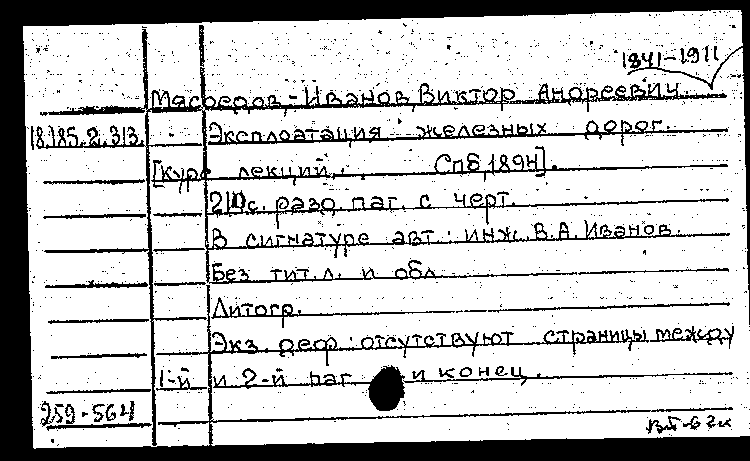 1841-1911
Мясоедов-Иванов, Виктор Андреевич.
18.185.2.313. Эксплоатация железных дорог.
[Курс лекций. Спб, 1894].
с. разд. паг. с черт.
В сигнатуре авт.: инж. В.А. Иванов.
Без тит. л. и обл.
Литогр.
Экз. деф.: отсутствуют страницы между
1-й и 2-й паг. и конец.
259-564